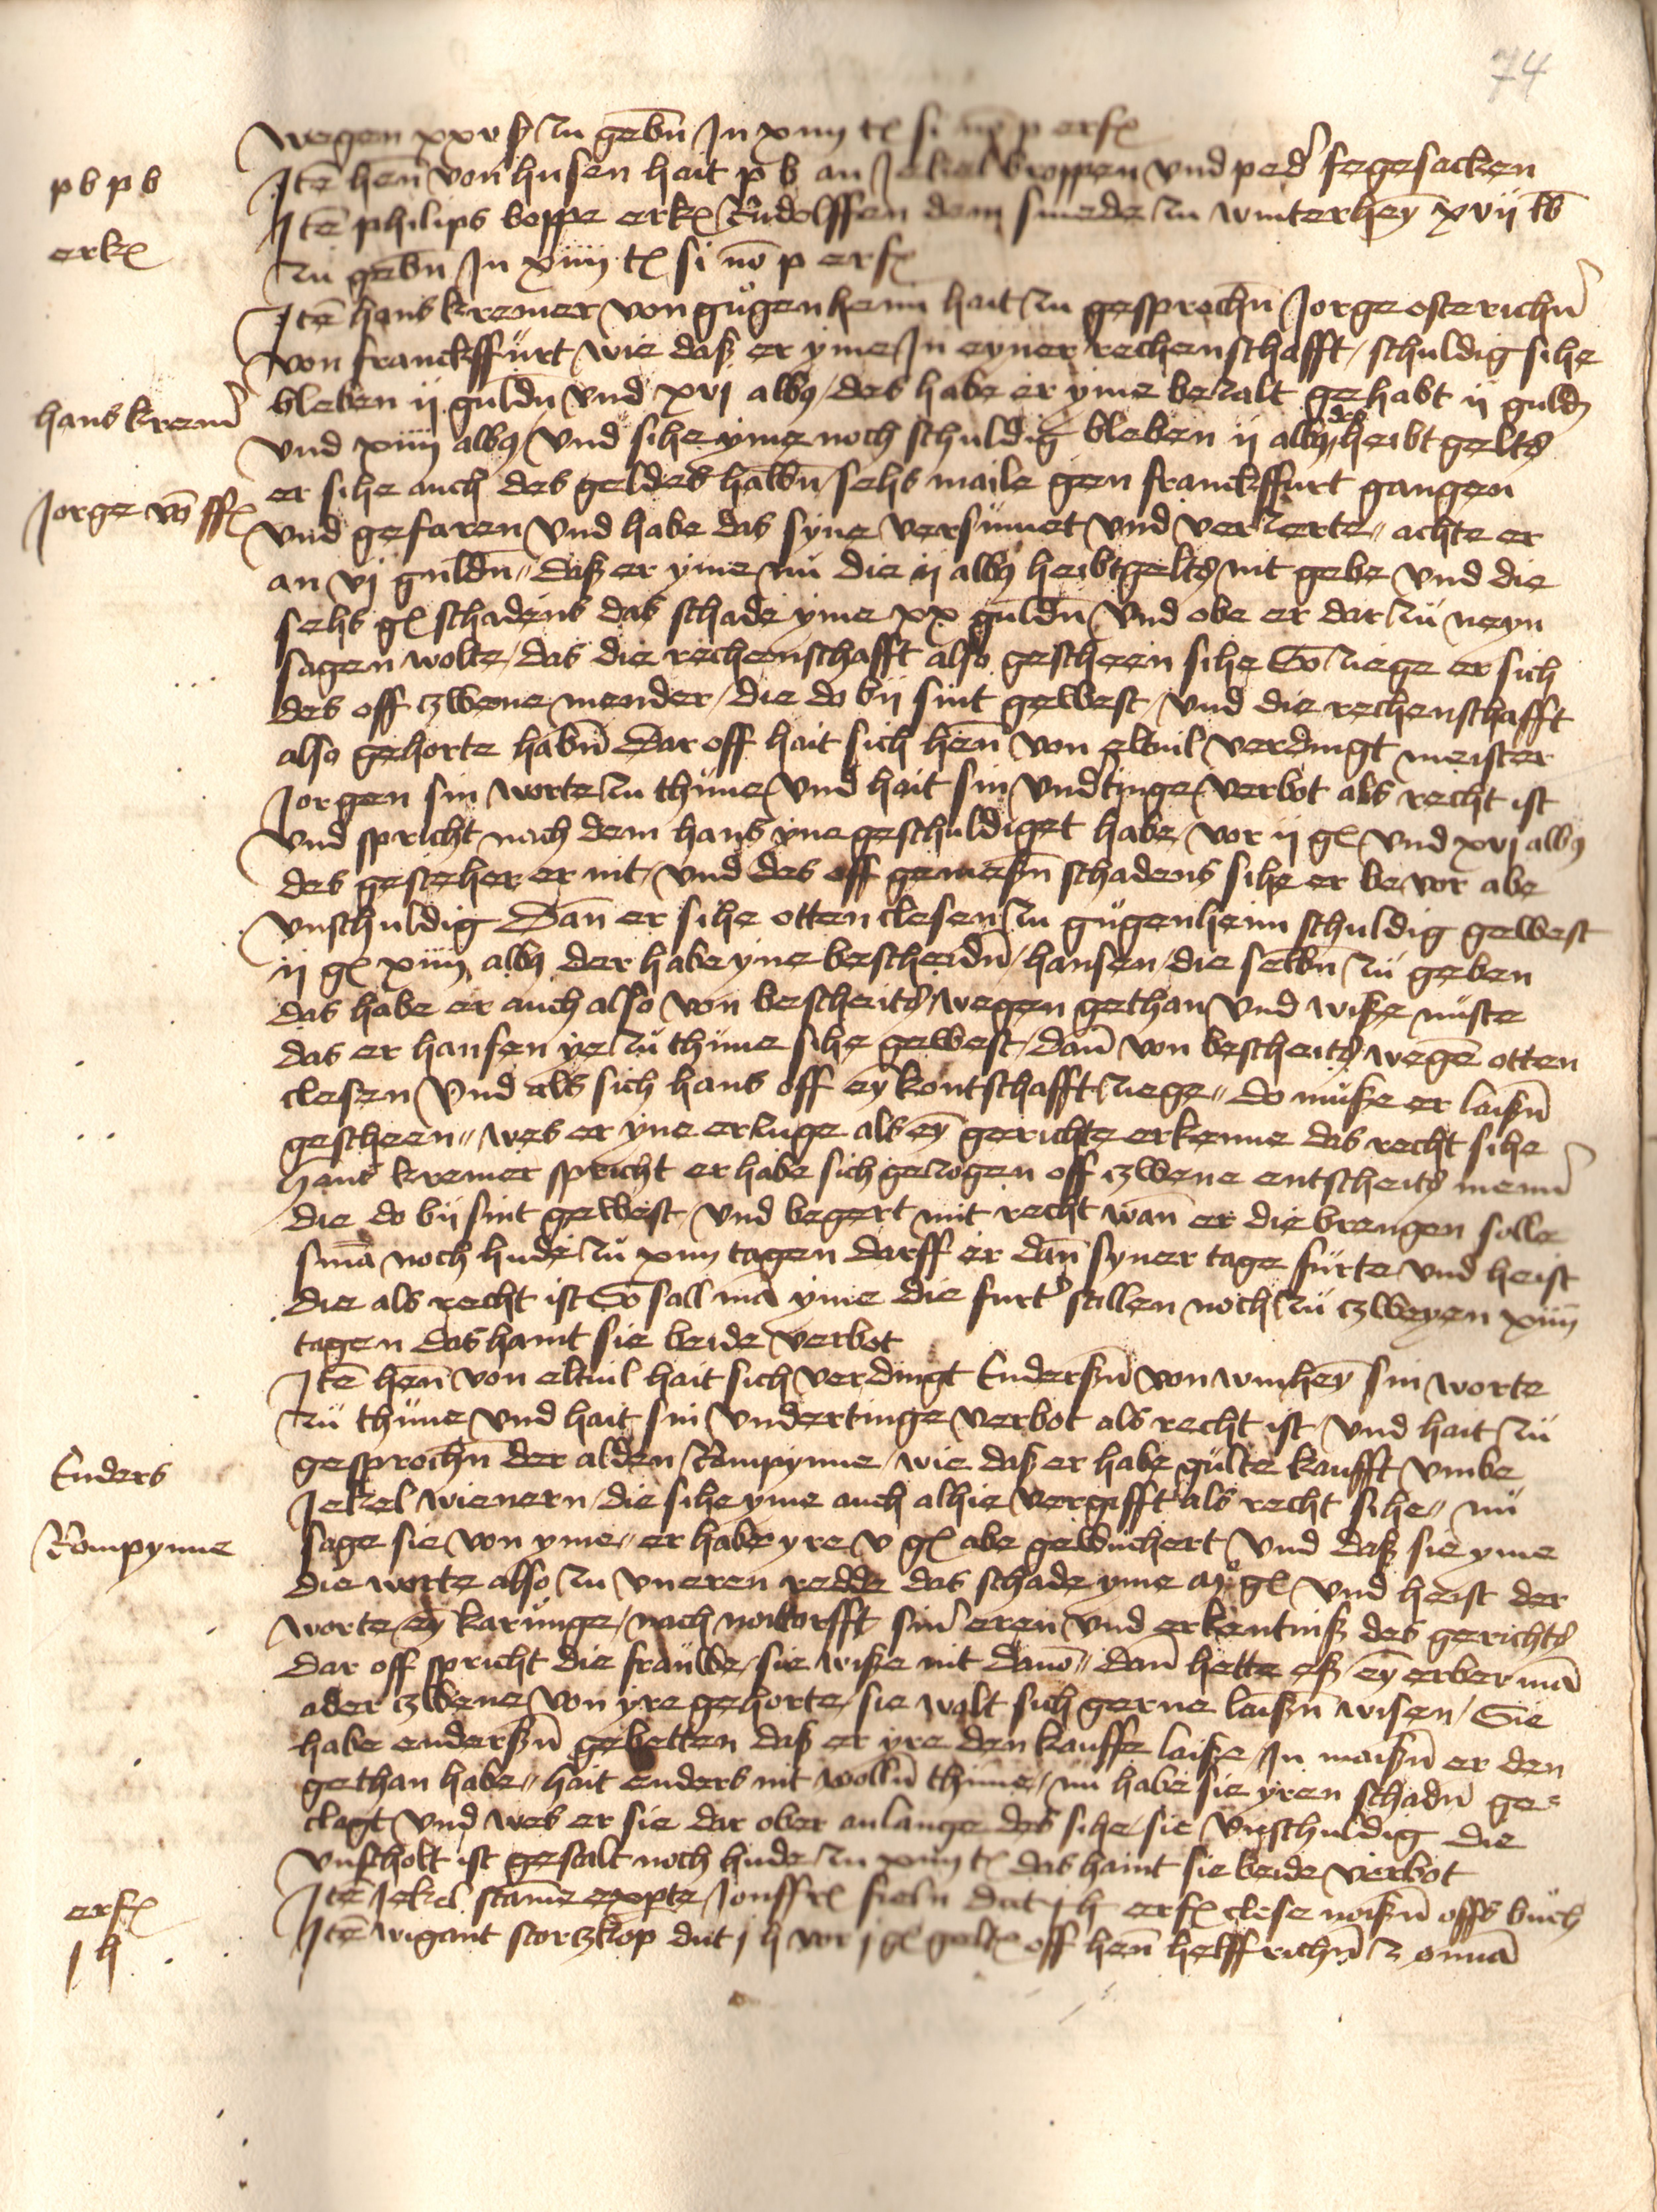 74
wegen xxv ß zu gebn̄ Jn xiiij t si nō p erf
p b p b
Jtē hen̄ von husen hait p b an Jekiel broppen vnd ped' fegesacken
erk
Jtē philips boppe erk Rudolffen dem smede zu winterheȳ xvij lb
zu gebn̄ Jn xiiij t si nō p erf
Jtē hans kremer von gugenheim hait zu gesprochn̄ Jorge osterichn̄
von franckffurt wie daß er yme Jn eyner rechenschafft schuldig sihe
hans krem'
bleben ij guldn̄ vnd xvj alb9 des habe er yme bezalt gehabt ij guld
vnd xiiij alb9 vnd sihe yme noch schuldig bleben ij alb9 des heibtgelts
Jorge vō ff
er sihe auch des geldes halbn̄ sehs maile gen franckffurt gangen
vnd gefaren vnd habe das syne versumet vnd verzerte achte er
an vj guldn̄ daß er yme nu die ij alb9 heibtgelts nit gebe vnd die
sehs gl schadens das schade yme xx guldn̄ vnd obe er dar zu neyn
sagen wolte das die rechenschafft also gescheen sihe So ziege er sich
des off zwene mender die do bij sint gewest vnd die rechenschafft
also gehorte habn̄ Dar off hait sich hen̄ von eltuil verdingt meister
Jorgen sin worte zu thune vnd hait sin vndtinge verbot als recht ist
vnd spricht nach dem hans yne geschuldiget habe vor ij gl vnd xvj alb9
des gesteher er nit vnd des off gemeßn̄ schadens sihe er be vor abe
vnschuldig Dan̄ er sihe otten clesen zu gugenheim schuldig gewest
ij gl xiiij alb9 der habe yne bescheidn̄ hansen die selbn̄ zu geben
das habe er auch also von bescheits wegen gethan vnd wiße nuste
das er hansen ye zu thune sihe gewest dan̄ von bescheits wegē otten
clesen vnd als sich hans off eȳ kontschafft ziege do muße er laißn̄
gescheen wes er yne erzuge als eȳ gerichte erkenne das recht sihe
hans kremer spricht er habe sich gezogen off zwene entscheits menn'
die do bij sint gewest vnd begert mit recht wan̄ er die brengen solle
smā noch hude zu xiiij tagen darff er dan̄ syner tage furte vnd heist
die als recht ist So sall mā yme die furt' stillen noch zu zweyen xiiij
tagen das haint sie beide verbot
Jtē hen̄ von eltuil hait sich verdingt Enderßn̄ von winheȳ sin worte
zu thune vnd hait sin vndertinge verbot als recht ist vnd hait zu
Enders
gesprochn̄ der alden Rompynne wie daß er habe gulte kaufft vmbe
Jekel wienern die sihe yme auch alhie vergifft als recht sihe nu
Rompynne
sage sie von yme er habe yre v gl abe gewuchert vnd daß sie yme
die worte also zu vneren redde das schade yme gl vnd heist der
worte eȳ karunge nach notdorfft sin' eren vnd erkentniß des gerichts
Dar off spricht die frauwe sie wiße nit dauō dan̄ hette eß eȳ erber mā
ader zwene von yre gehorte sie wolt sich gerne laißn̄ wisen Sie
habe enderßn̄ gebetten daß er yre den kauffe laiße Jn maißn̄ er den
gethan habe hait enders nit wolln̄ thune nu habe sie yren schadn̄ ge=
clagt vnd wes er sie dar ober anlange des sihe sie vnschuldig die
vnscholt ist gestalt noch hude zu xiiij t das haint sie beide verbot
erf
Jtē Jekel stam̄e expte Jonffr sieln dut j h erf clese noißn̄ offs buch
j h
Jtē wigant storzkop dut j h vor j gl gelt off hen̄ helffrichn̄ z omā